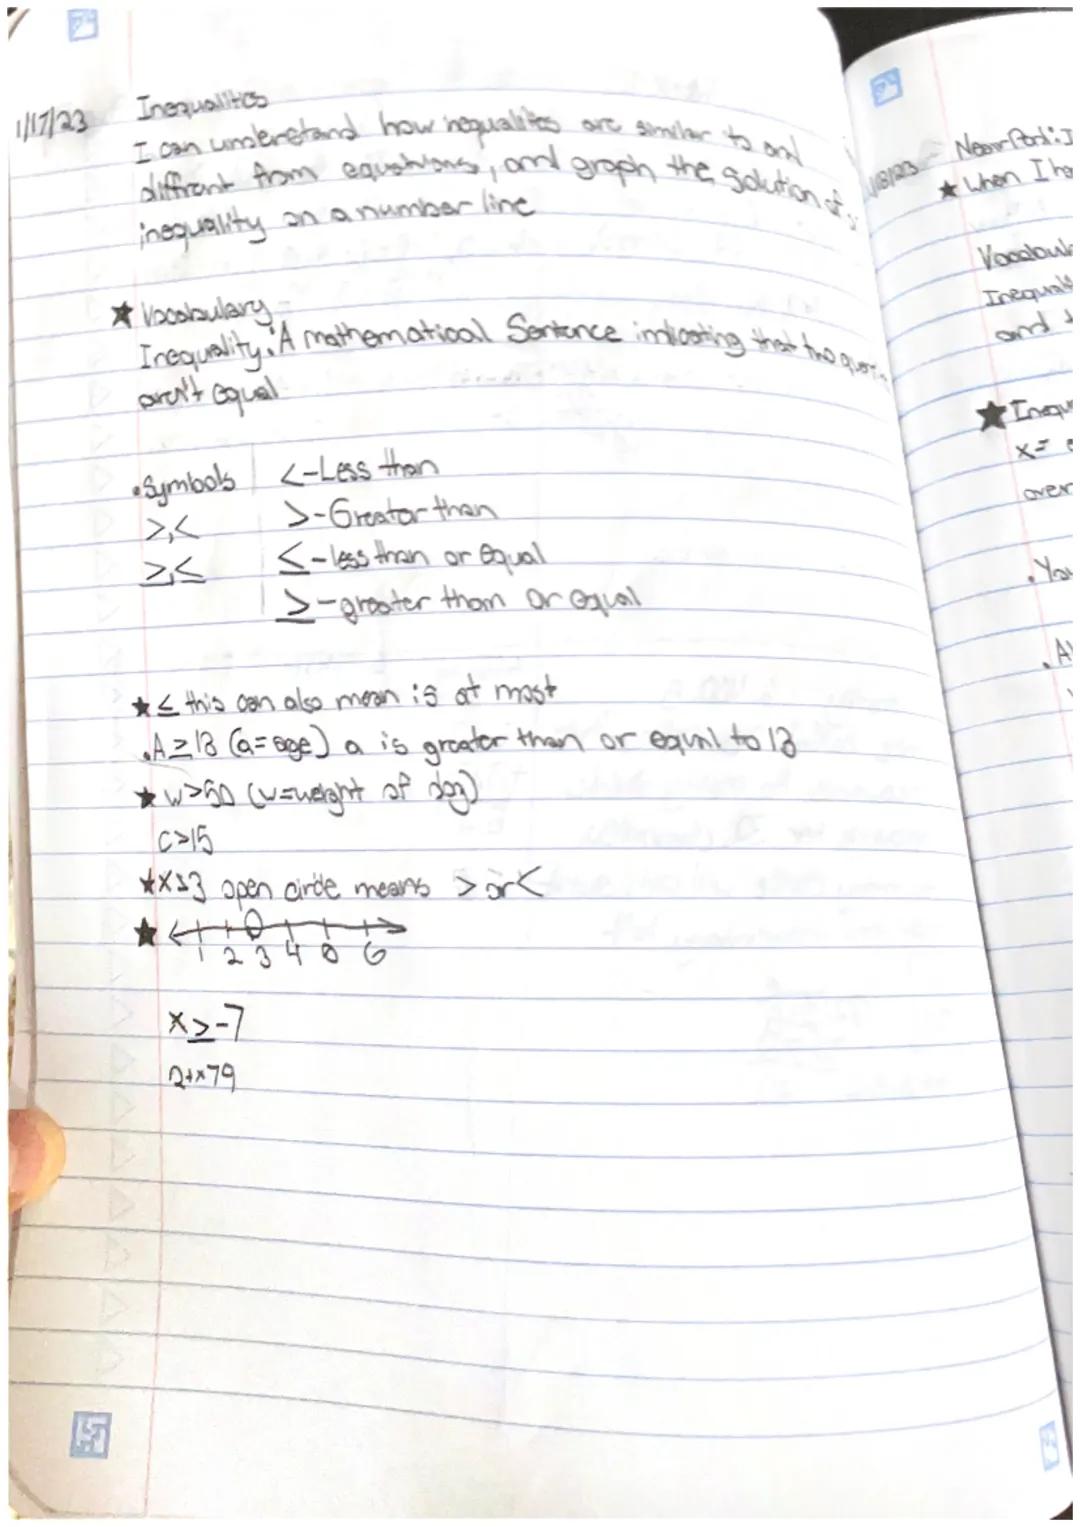 1/17/23 Inequalities
I can understand how inequalites are similar to and
diffrent from equations, and graph the solution of
inequality on a number line
★ Vocabulary
Inequality: A mathematical Sentence indicating that two
aren't equal
• Symbols
>,<
≥,≤
<-Less than
>-Greater than
≤-less than or equal
≥-greater than or equal
★ ≤ this can also mean is at most
• A ≥ 18 (a=age) a is greater than or equal to 18
★ w>50 (w=weight of dog)
C>15
★ open circle means > or <
★ 1 2 3 4 5 6
x≥-7
2+x79
1/18/23 Near Pod: I
★ When I ha
Vocabula
and
★ Inequ
x=
over
• You